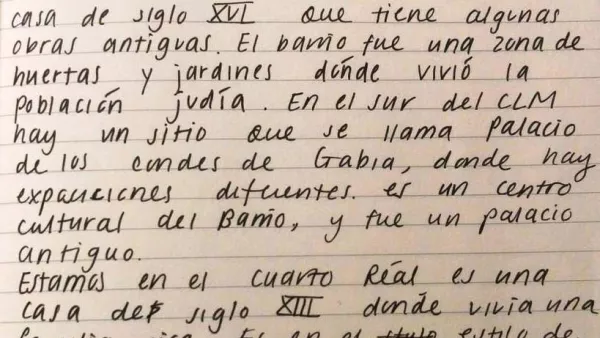 casa de siglo XVI que tiene algunas
obras antiguas. El barrio fue una zona de
huertas y jardines dónde vivió la
población judía. En el sur del CLM
hay un sitio que se llama Palacio
de los condes de Gabia, donde hay
expociciones difcuentes. es un centro
cultural del Barrio, y fue un palacio
antiguo.
Estamos en el Cuarto Réal es una
casa del siglo XIII donde vivia una
Es en el estilo de